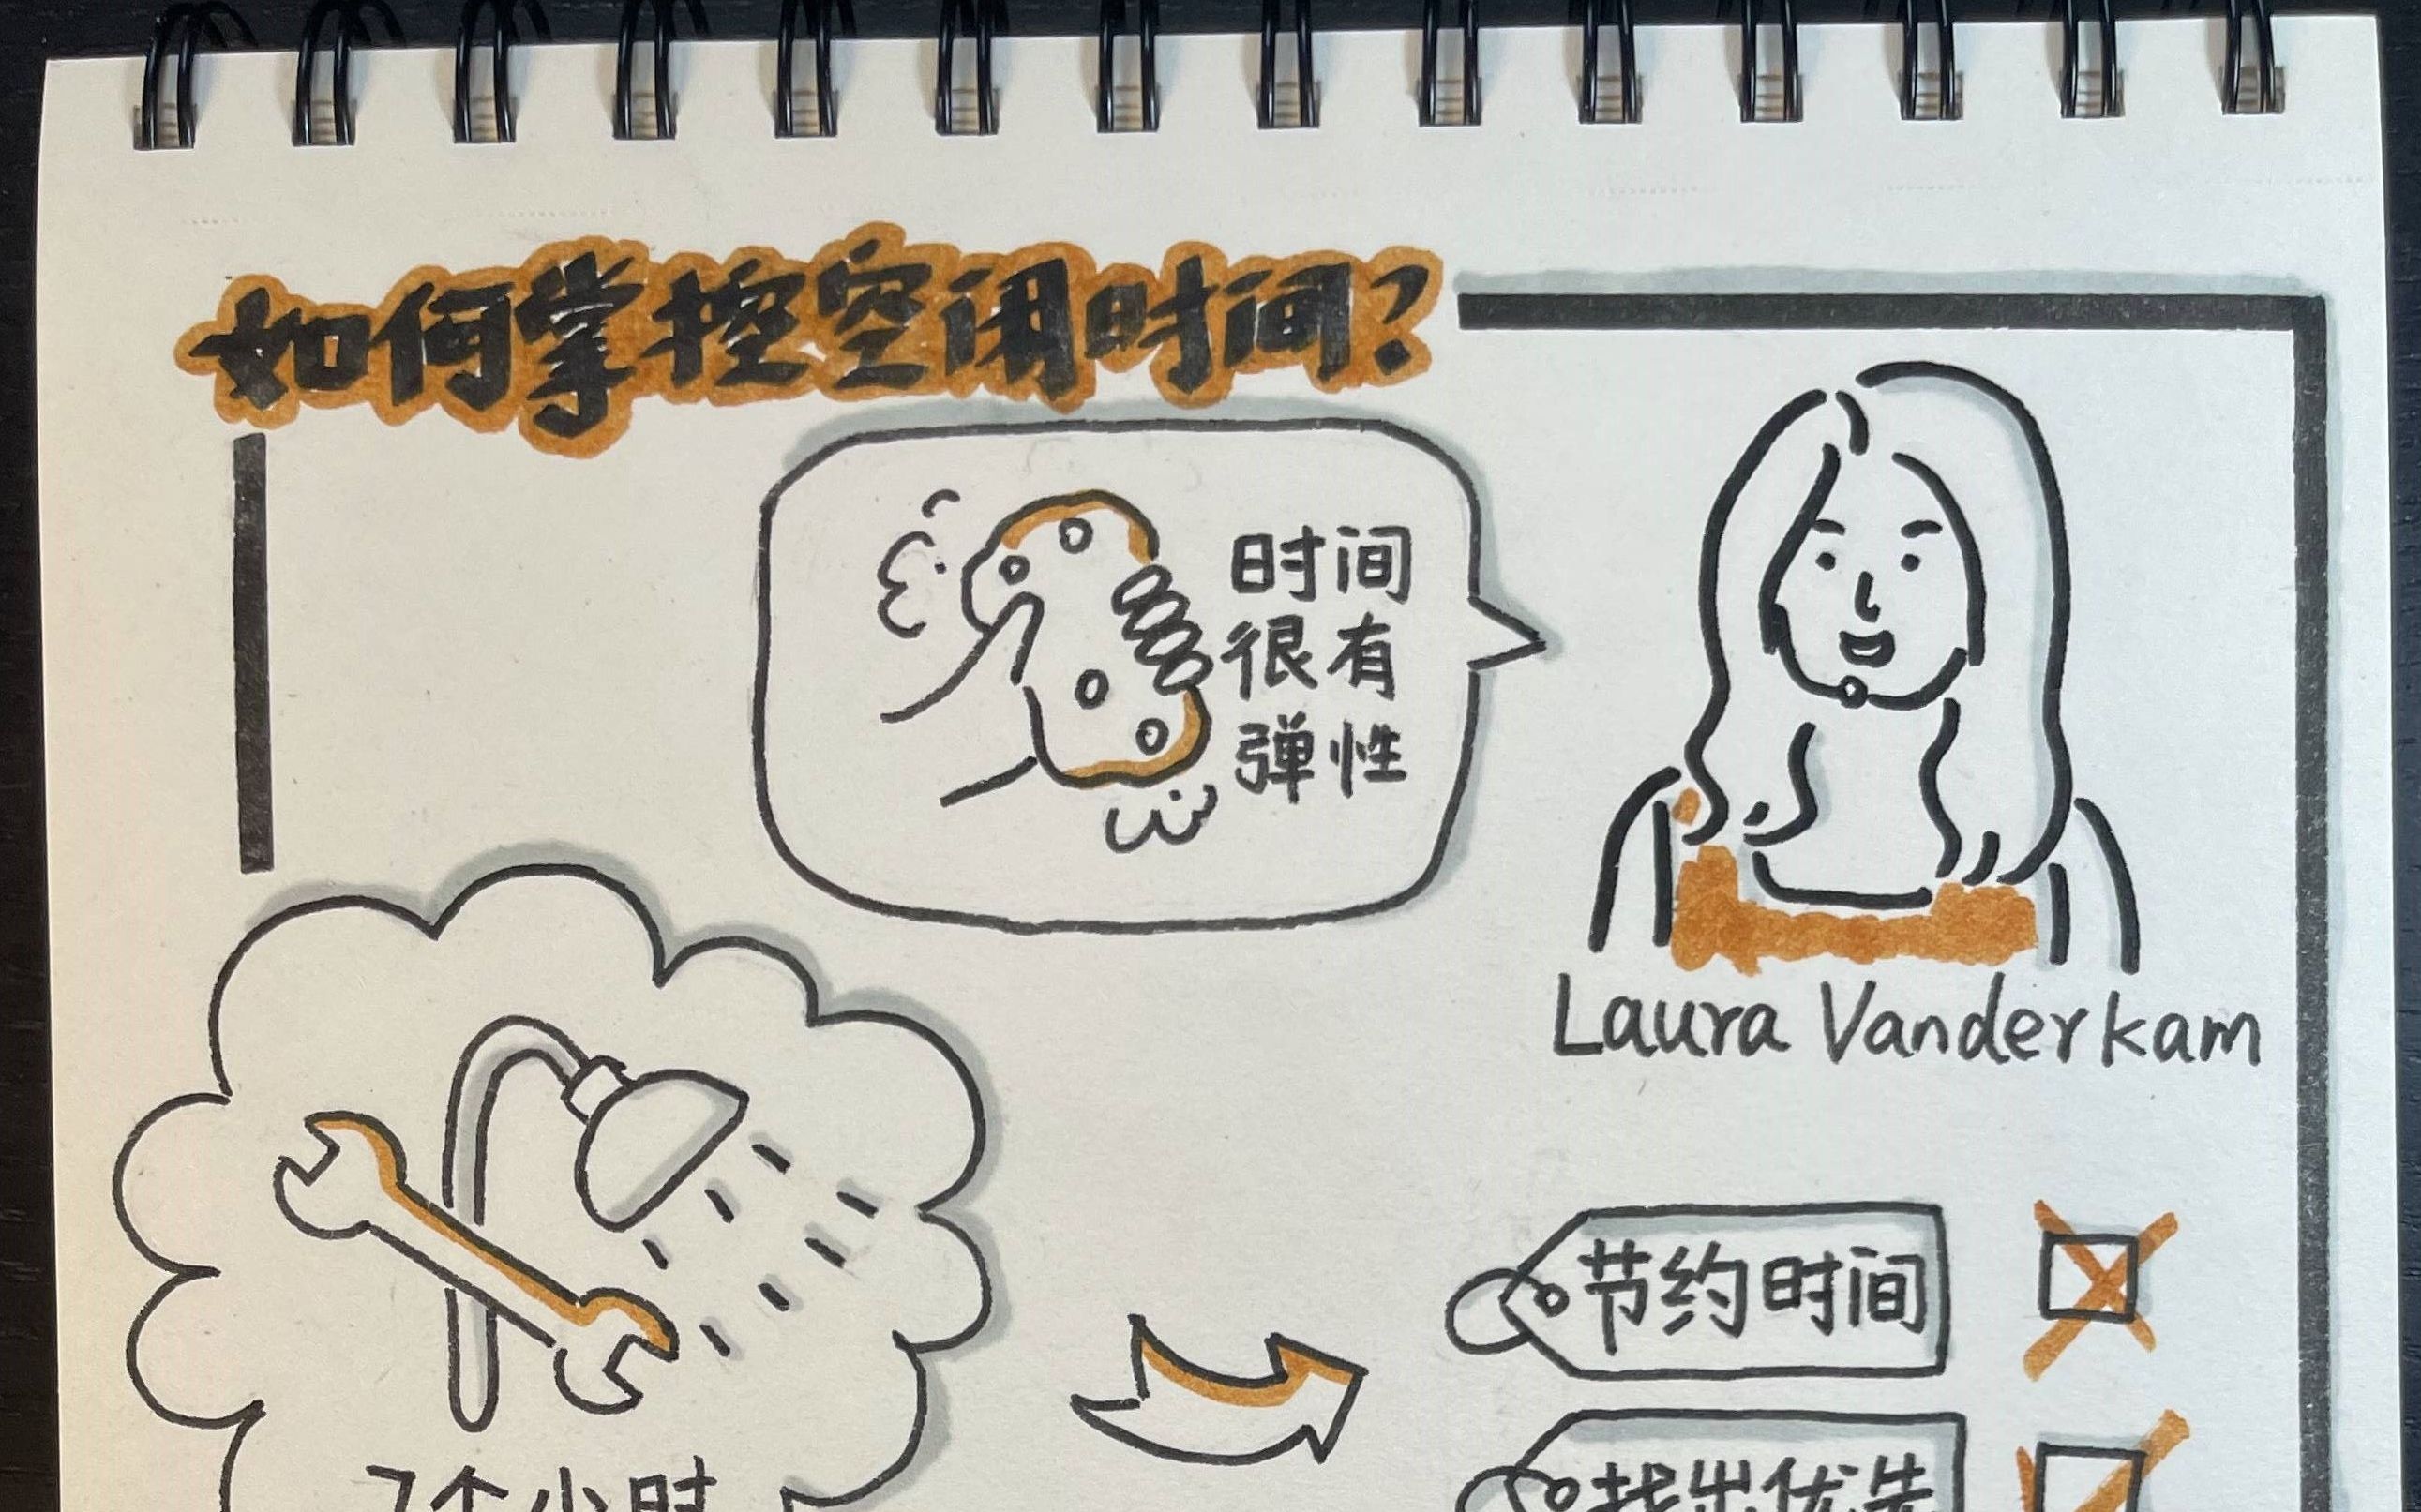 如何掌控空闲时间?
时间
很有
弹性
Laura Vanderkam
节约时间
7个小时
找出优先